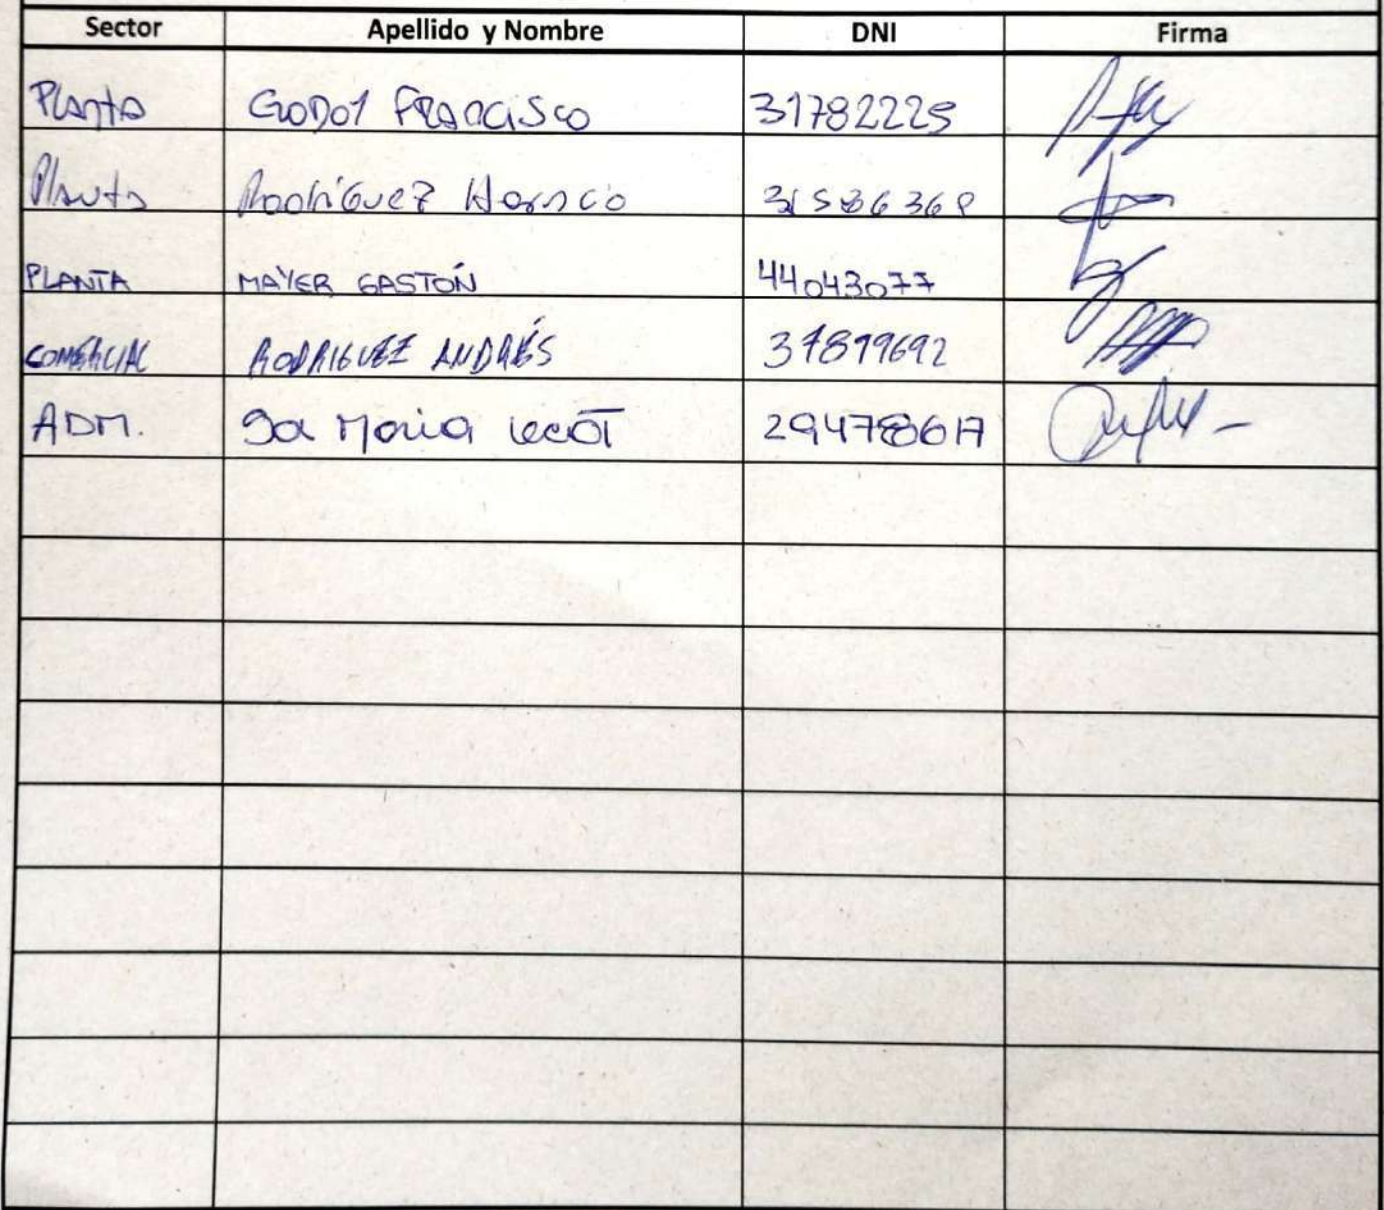 Sector Apellido y Nombre DNI Firma
Planta GODOY FRANCISCO 31782225
Planta Rodríguez Horacio 31586368
PLANTA MAYER GASTÓN 44043077
COMERCIAL RODRIGUEZ ANDRÉS 37899692
ADM. María